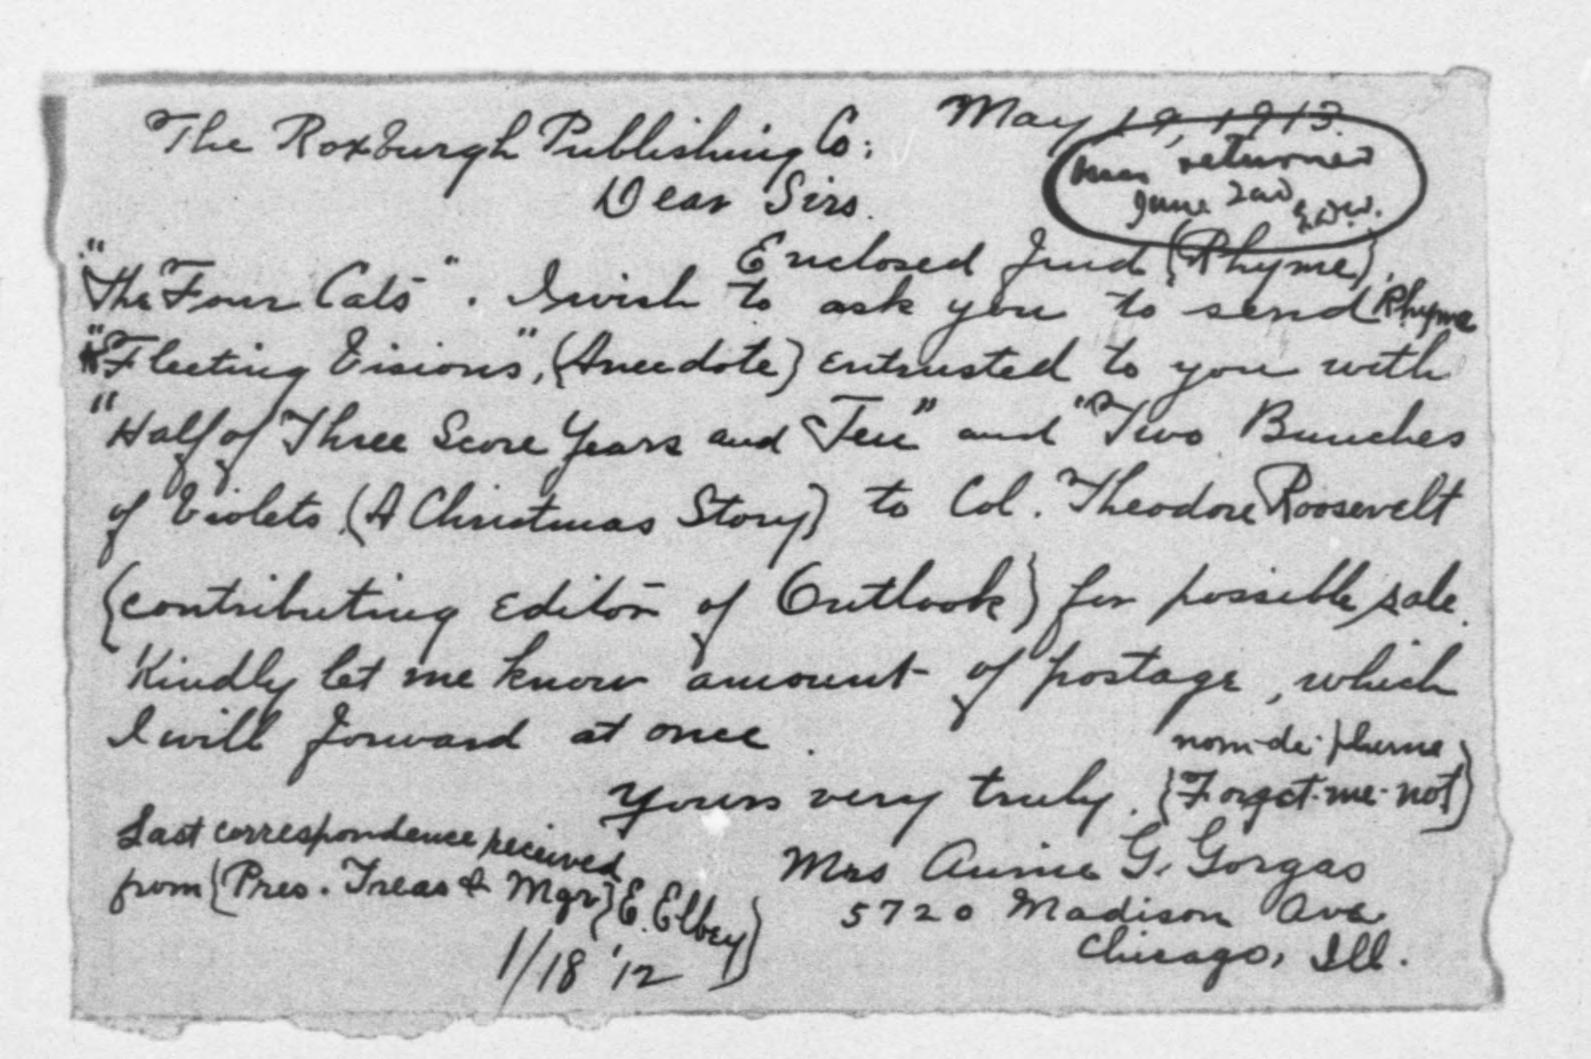 The Roxburgh Publishing Co: May 19, 1913.
Mss returned
Dear Sirs.
June 2nd
Enclosed find (Rhyme),
"The Four Cats". I wish to ask you to send Rhyme
"Fleeting Visions", (Anecdote) entrusted to you with
"Half of Three Score Years and Ten" and "Two Bunches
of Violets (A Christmas Story) to Col. Theodore Roosevelt
{contributing Editor of Outlook} for possible sale.
Kindly let me know amount of postage, which
I will forward at once.
nom-de-plume
Yours very truly. {Forget-me-not}
Last correspondence received
from {Pres. Treas & Mgr} {E. Elbey}
1/18 '12
Mrs Annie G. Gorgas
5720 Madison Ave
Chicago, Ill.